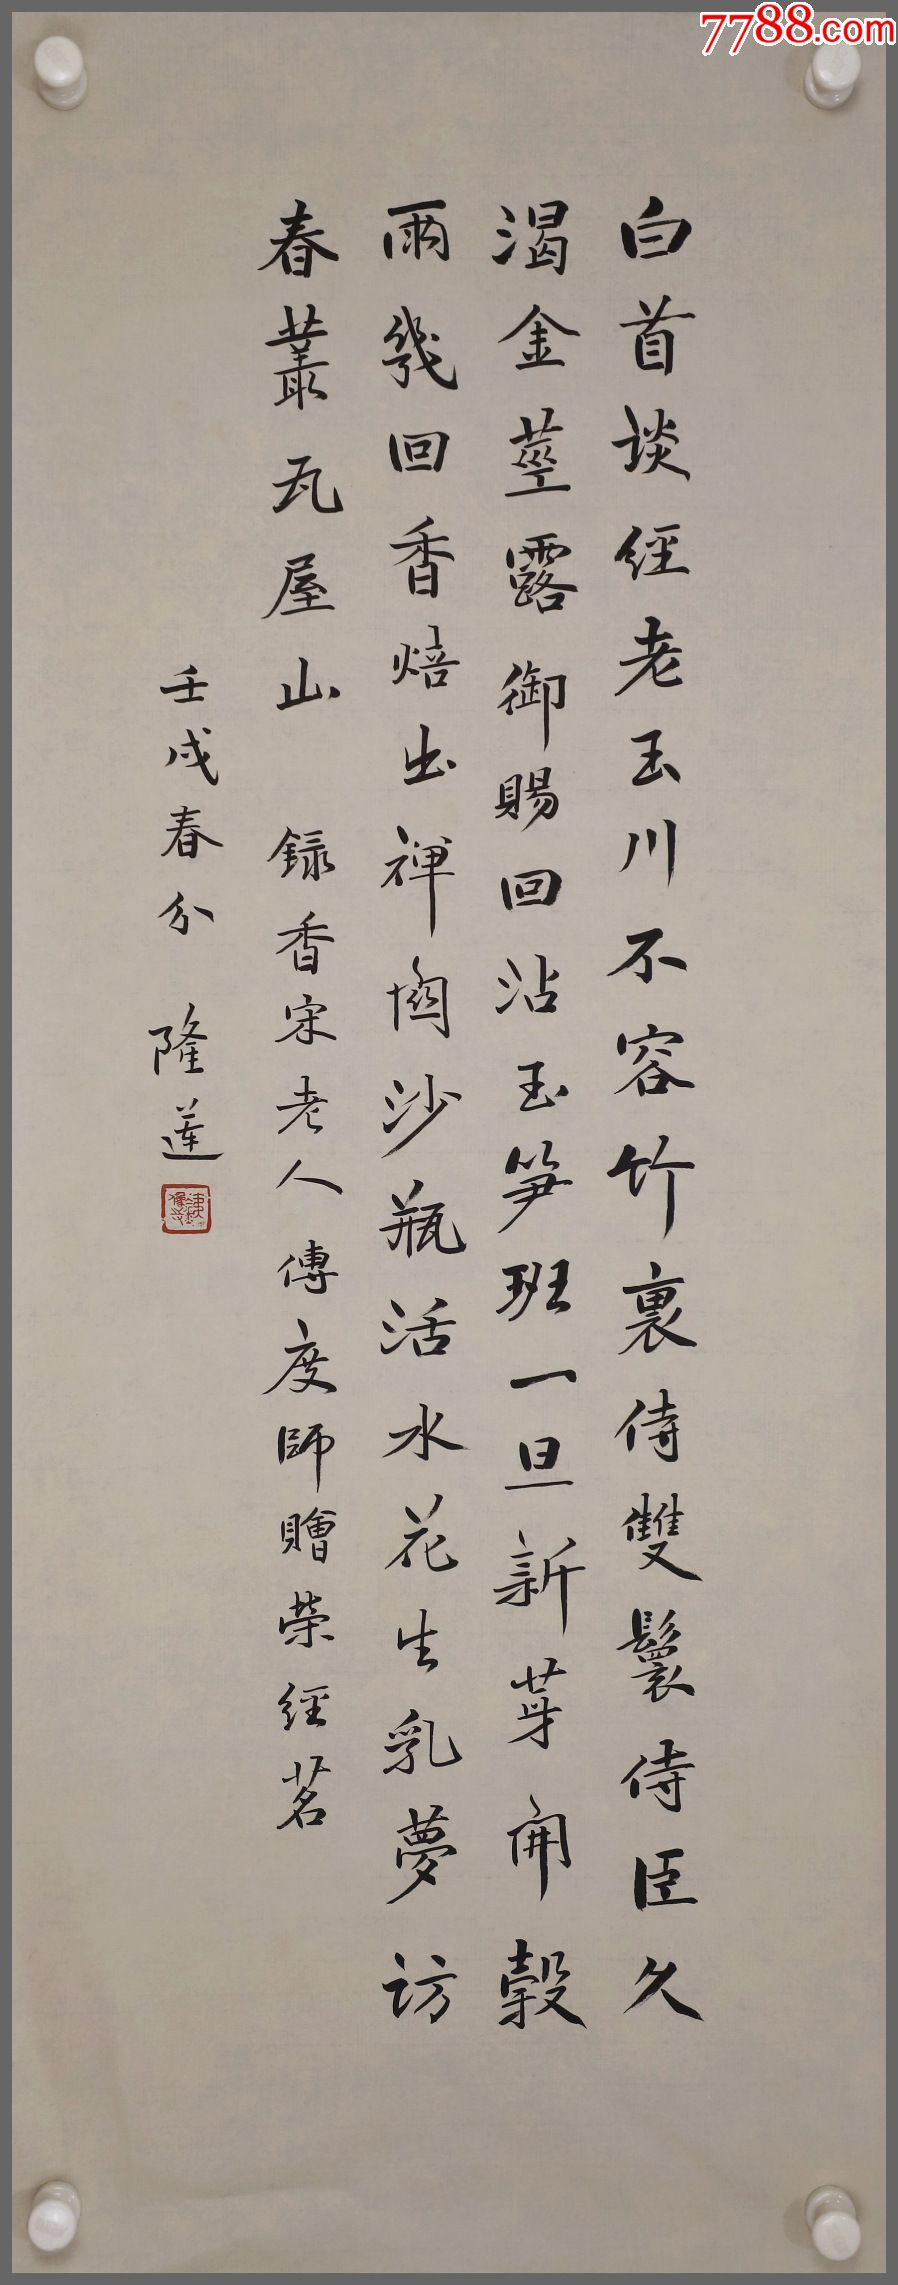 7788.com
白首谈経老玉川不容竹裏侍雙鬟侍臣久
渴金莖露御賜回沾玉笋班一旦新芽開穀
雨幾回香焙出禅關沙瓶活水花生乳夢访
春叢瓦屋山 録香宋老人傅度師贈荣経茗
壬戌春分 隆莲